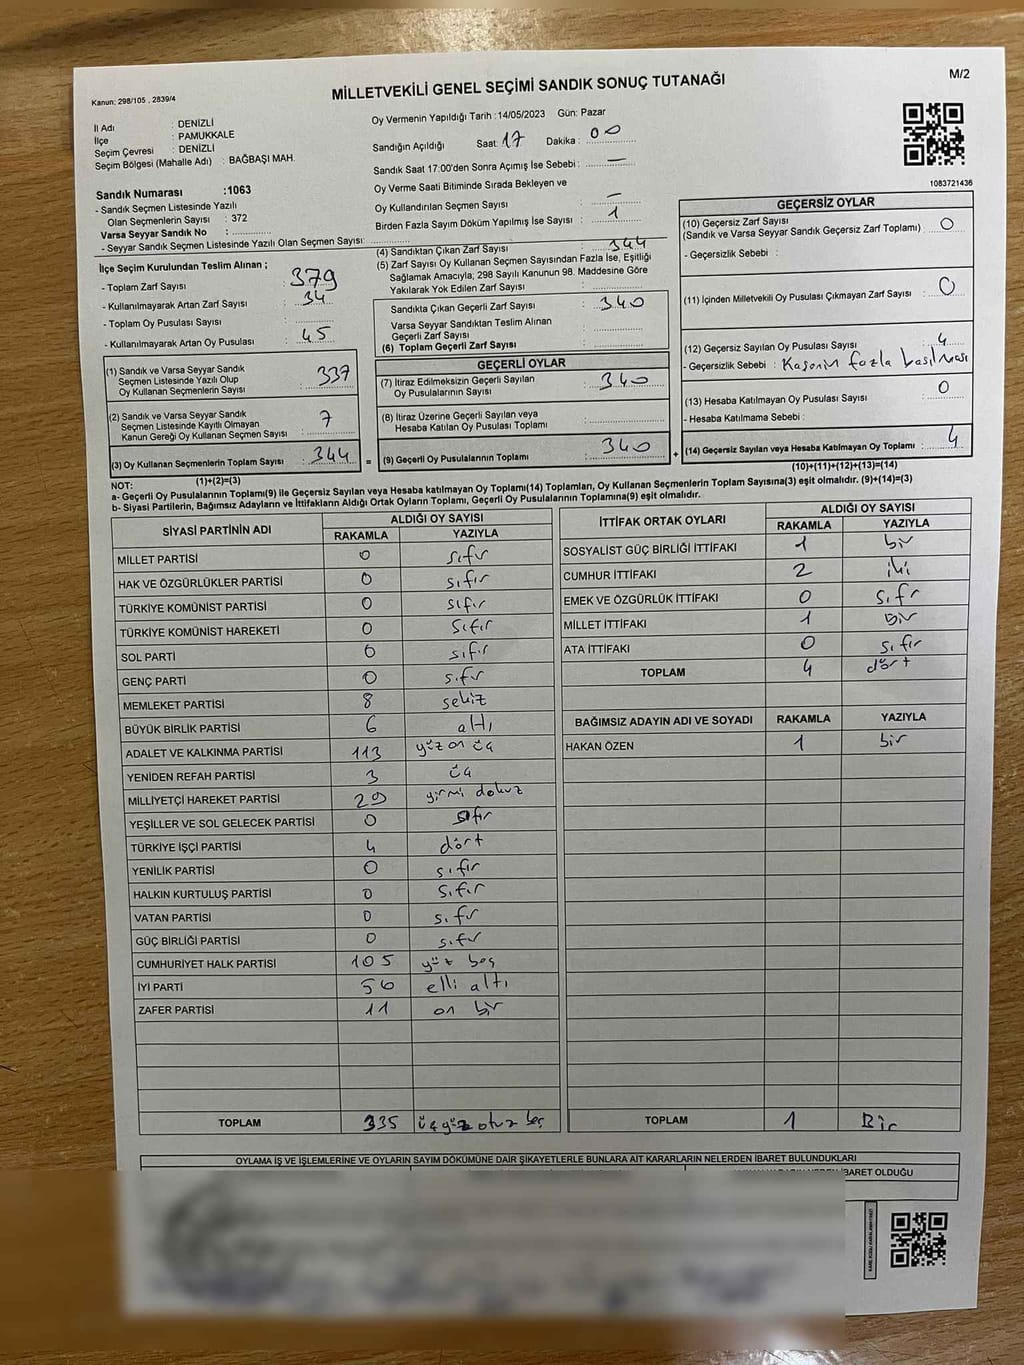 MİLLETVEKİLİ GENEL SEÇİMİ SANDIK SONUÇ TUTANAĞI
M/2
Kanun: 298/105 , 2839/4
İl Adı : DENİZLİ
İlçe : PAMUKKALE
Seçim Çevresi : DENİZLİ
Seçim Bölgesi (Mahalle Adı) : BAĞBAŞI MAH.
Sandık Numarası :1063
- Sandık Seçmen Listesinde Yazılı
Olan Seçmenlerin Sayısı : 372
Varsa Seyyar Sandık No :
- Seyyar Sandık Seçmen Listesinde Yazılı Olan Seçmen Sayısı:
Oy Vermenin Yapıldığı Tarih :14/05/2023 Gün: Pazar
Sandığın Açıldığı Saat: 17 Dakika : 00
Sandık Saat 17:00'den Sonra Açımış İse Sebebi : —
Oy Verme Saati Bitiminde Sırada Bekleyen ve
Oy Kullandırılan Seçmen Sayısı : —
Birden Fazla Sayım Döküm Yapılmış İse Sayısı : 1
1083721436
İlçe Seçim Kurulundan Teslim Alınan ;
- Toplam Zarf Sayısı : 379
- Kullanılmayarak Artan Zarf Sayısı : 34
- Toplam Oy Pusulası Sayısı :
- Kullanılmayarak Artan Oy Pusulası : 45
(1) Sandık ve Varsa Seyyar Sandık
Seçmen Listesinde Yazılı Olup
Oy Kullanan Seçmenlerin Sayısı : 337
(2) Sandık ve Varsa Seyyar Sandık
Seçmen Listesinde Kayıtlı Olmayan
Kanun Gereği Oy Kullanan Seçmen Sayısı : 7
(3) Oy Kullanan Seçmenlerin Toplam Sayısı : 344
(1)+(2)=(3)
(4) Sandıktan Çıkan Zarf Sayısı : 344
(5) Zarf Sayısı Oy Kullanan Seçmen Sayısından Fazla İse, Eşitliği
Sağlamak Amacıyla; 298 Sayılı Kanunun 98. Maddesine Göre
Yakılarak Yok Edilen Zarf Sayısı :
Sandıkta Çıkan Geçerli Zarf Sayısı : 340
Varsa Seyyar Sandıktan Teslim Alınan
Geçerli Zarf Sayısı :
(6) Toplam Geçerli Zarf Sayısı :
GEÇERLİ OYLAR
(7) İtiraz Edilmeksizin Geçerli Sayılan
Oy Pusulalarının Sayısı : 340
(8) İtiraz Üzerine Geçerli Sayılan veya
Hesaba Katılan Oy Pusulası Toplamı :
= (9) Geçerli Oy Pusulalarının Toplamı : 340 +
GEÇERSİZ OYLAR
(10) Geçersiz Zarf Sayısı
(Sandık ve Varsa Seyyar Sandık Geçersiz Zarf Toplamı) : 0
- Geçersizlik Sebebi :
(11) İçinden Milletvekili Oy Pusulası Çıkmayan Zarf Sayısı : 0
(12) Geçersiz Sayılan Oy Pusulası Sayısı : 4
- Geçersizlik Sebebi : fazla basılması
(13) Hesaba Katılmayan Oy Pusulası Sayısı : 0
- Hesaba Katılmama Sebebi :
(14) Geçersiz Sayılan veya Hesaba Katılmayan Oy Toplamı : 4
(10)+(11)+(12)+(13)=(14)
NOT:
a- Geçerli Oy Pusulalarının Toplamı(9) ile Geçersiz Sayılan veya Hesaba katılmayan Oy Toplamı(14) Toplamları, Oy Kullanan Seçmenlerin Toplam Sayısına(3) eşit olmalıdır. (9)+(14)=(3)
b- Siyasi Partilerin, Bağımsız Adayların ve İttifakların Aldığı Ortak Oyların Toplamı, Geçerli Oy Pusulalarının Toplamına(9) eşit olmalıdır.
SİYASİ PARTİNİN ADI ALDIĞI OY SAYISI
RAKAMLA YAZIYLA
MİLLET PARTİSİ 0 sıfır
HAK VE ÖZGÜRLÜKLER PARTİSİ 0 sıfır
TÜRKİYE KOMÜNİST PARTİSİ 0 sıfır
TÜRKİYE KOMÜNİST HAREKETİ 0 sıfır
SOL PARTİ 0 sıfır
GENÇ PARTİ 0 sıfır
MEMLEKET PARTİSİ 8 sekiz
BÜYÜK BİRLİK PARTİSİ 6 altı
ADALET VE KALKINMA PARTİSİ 113 yüz on üç
YENİDEN REFAH PARTİSİ 3 üç
MİLLİYETÇİ HAREKET PARTİSİ 29 yirmi dokuz
YEŞİLLER VE SOL GELECEK PARTİSİ 0 sıfır
TÜRKİYE İŞÇİ PARTİSİ 4 dört
YENİLİK PARTİSİ 0 sıfır
HALKIN KURTULUŞ PARTİSİ 0 sıfır
VATAN PARTİSİ 0 sıfır
GÜÇ BİRLİĞİ PARTİSİ 0 sıfır
CUMHURİYET HALK PARTİSİ 105 yüz beş
İYİ PARTİ 56 elli altı
ZAFER PARTİSİ 11 on bir
TOPLAM 335 üçyüz otuz beş
İTTİFAK ORTAK OYLARI ALDIĞI OY SAYISI
RAKAMLA YAZIYLA
SOSYALİST GÜÇ BİRLİĞİ İTTİFAKI 1 bir
CUMHUR İTTİFAKI 2 iki
EMEK VE ÖZGÜRLÜK İTTİFAKI 0 sıfır
MİLLET İTTİFAKI 1 bir
ATA İTTİFAKI 0 sıfır
TOPLAM 4 dört
BAĞIMSIZ ADAYIN ADI VE SOYADI RAKAMLA YAZIYLA
HAKAN ÖZEN 1 bir
TOPLAM 1 Bir
OYLAMA İŞ VE İŞLEMLERİNE VE OYLARIN SAYIM DÖKÜMÜNE DAİR ŞİKAYETLERLE BUNLARA AİT KARARLARIN NELERDEN İBARET BULUNDUKLARI
İBARET OLDUĞU